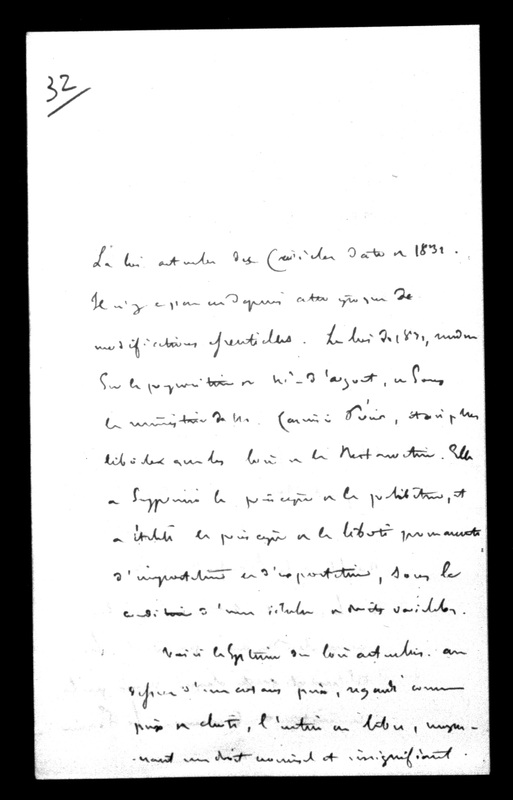 32
La loi actuelle des Céréales date de 1832.
Il n'y a point eu depuis cette époque de
modifications essentielles. La loi de 1832, rendue
sur la proposition de M. d'Argout, et sous
le ministère de M. Casimir Périer, était plus
libérale que les lois de la Restauration. Elle
a supprimé le principe de la prohibition, et
a établi le principe de la liberté permanente
d'importation et d'exportation, sous la
condition d'une échelle de droits variables.
Voici le système des lois actuelles. au
dessus d'un certain prix, regardé comme
prix de cherté, l'entrée est libre, moyen-
nant un droit nominal et insignifiant.